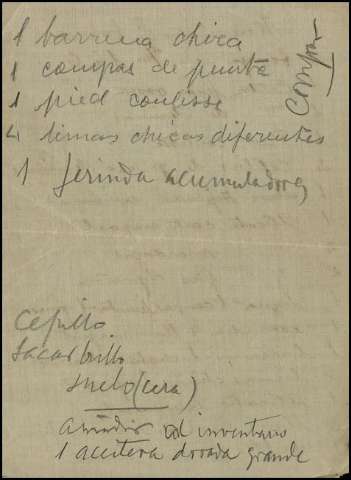 1 barrena chica
1 compas de punta
1 pied coulisse
4 limas chicas diferentes
1 Jerinda acumuladores
Compar
Cepillo
Sacar brillo
suelo (cera)
añadir al inventario
1 aceitera dorada grande